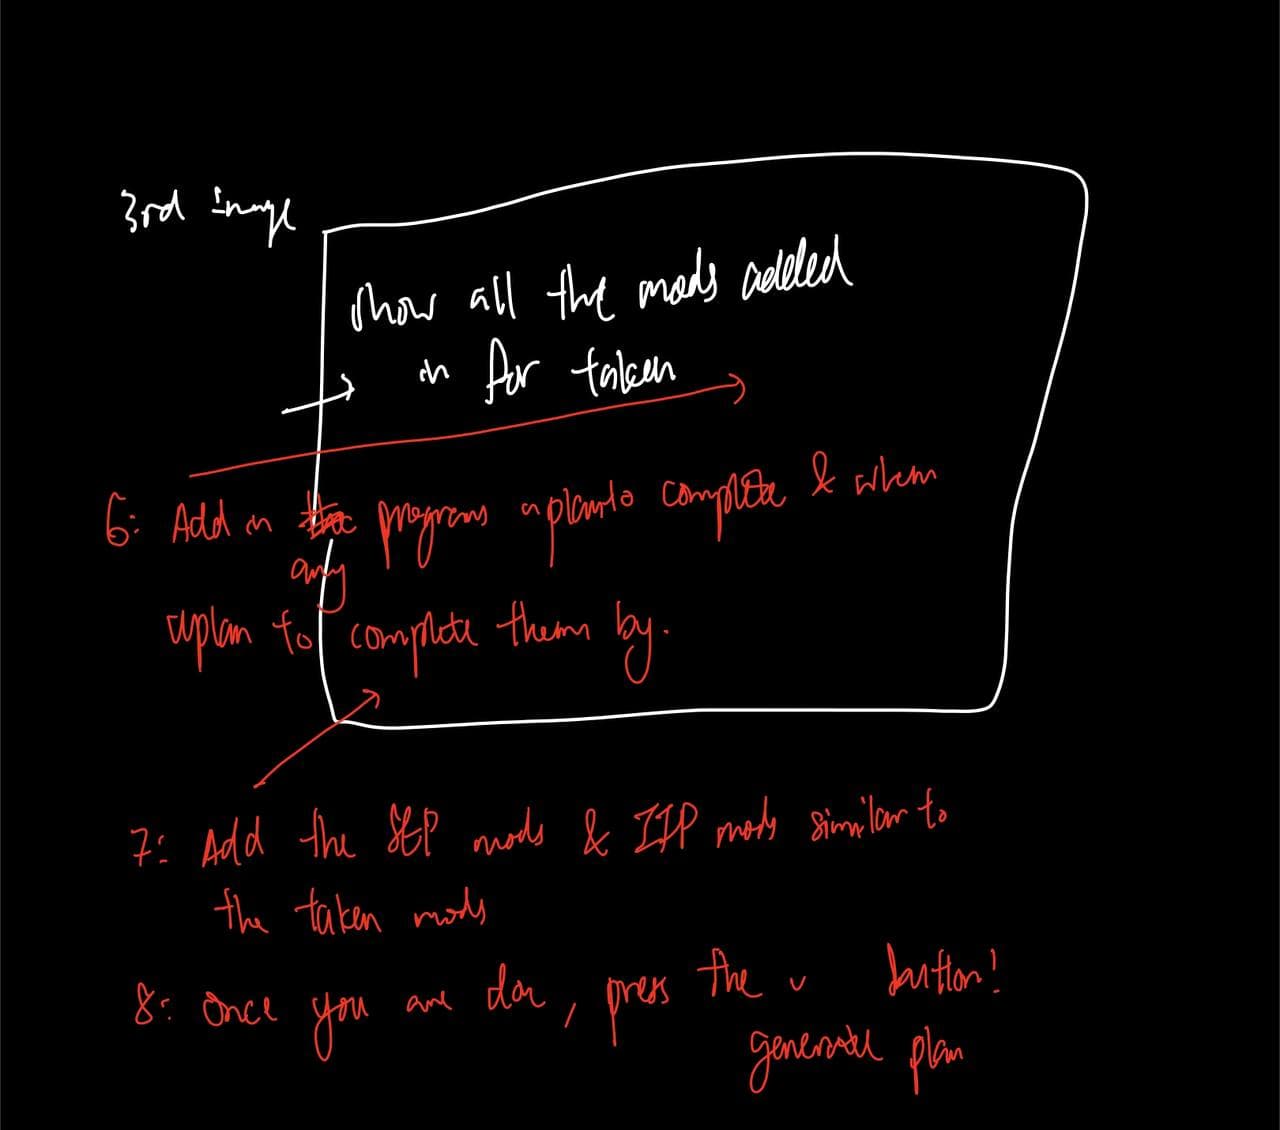 3rd image
show all the mods added
in for taken
6: Add in any programs u plan to complete & when
u plan to complete them by.
7: Add the SEP mods & IIP mods similar to
the taken mods
8: Once you are don, press the generate plan button!